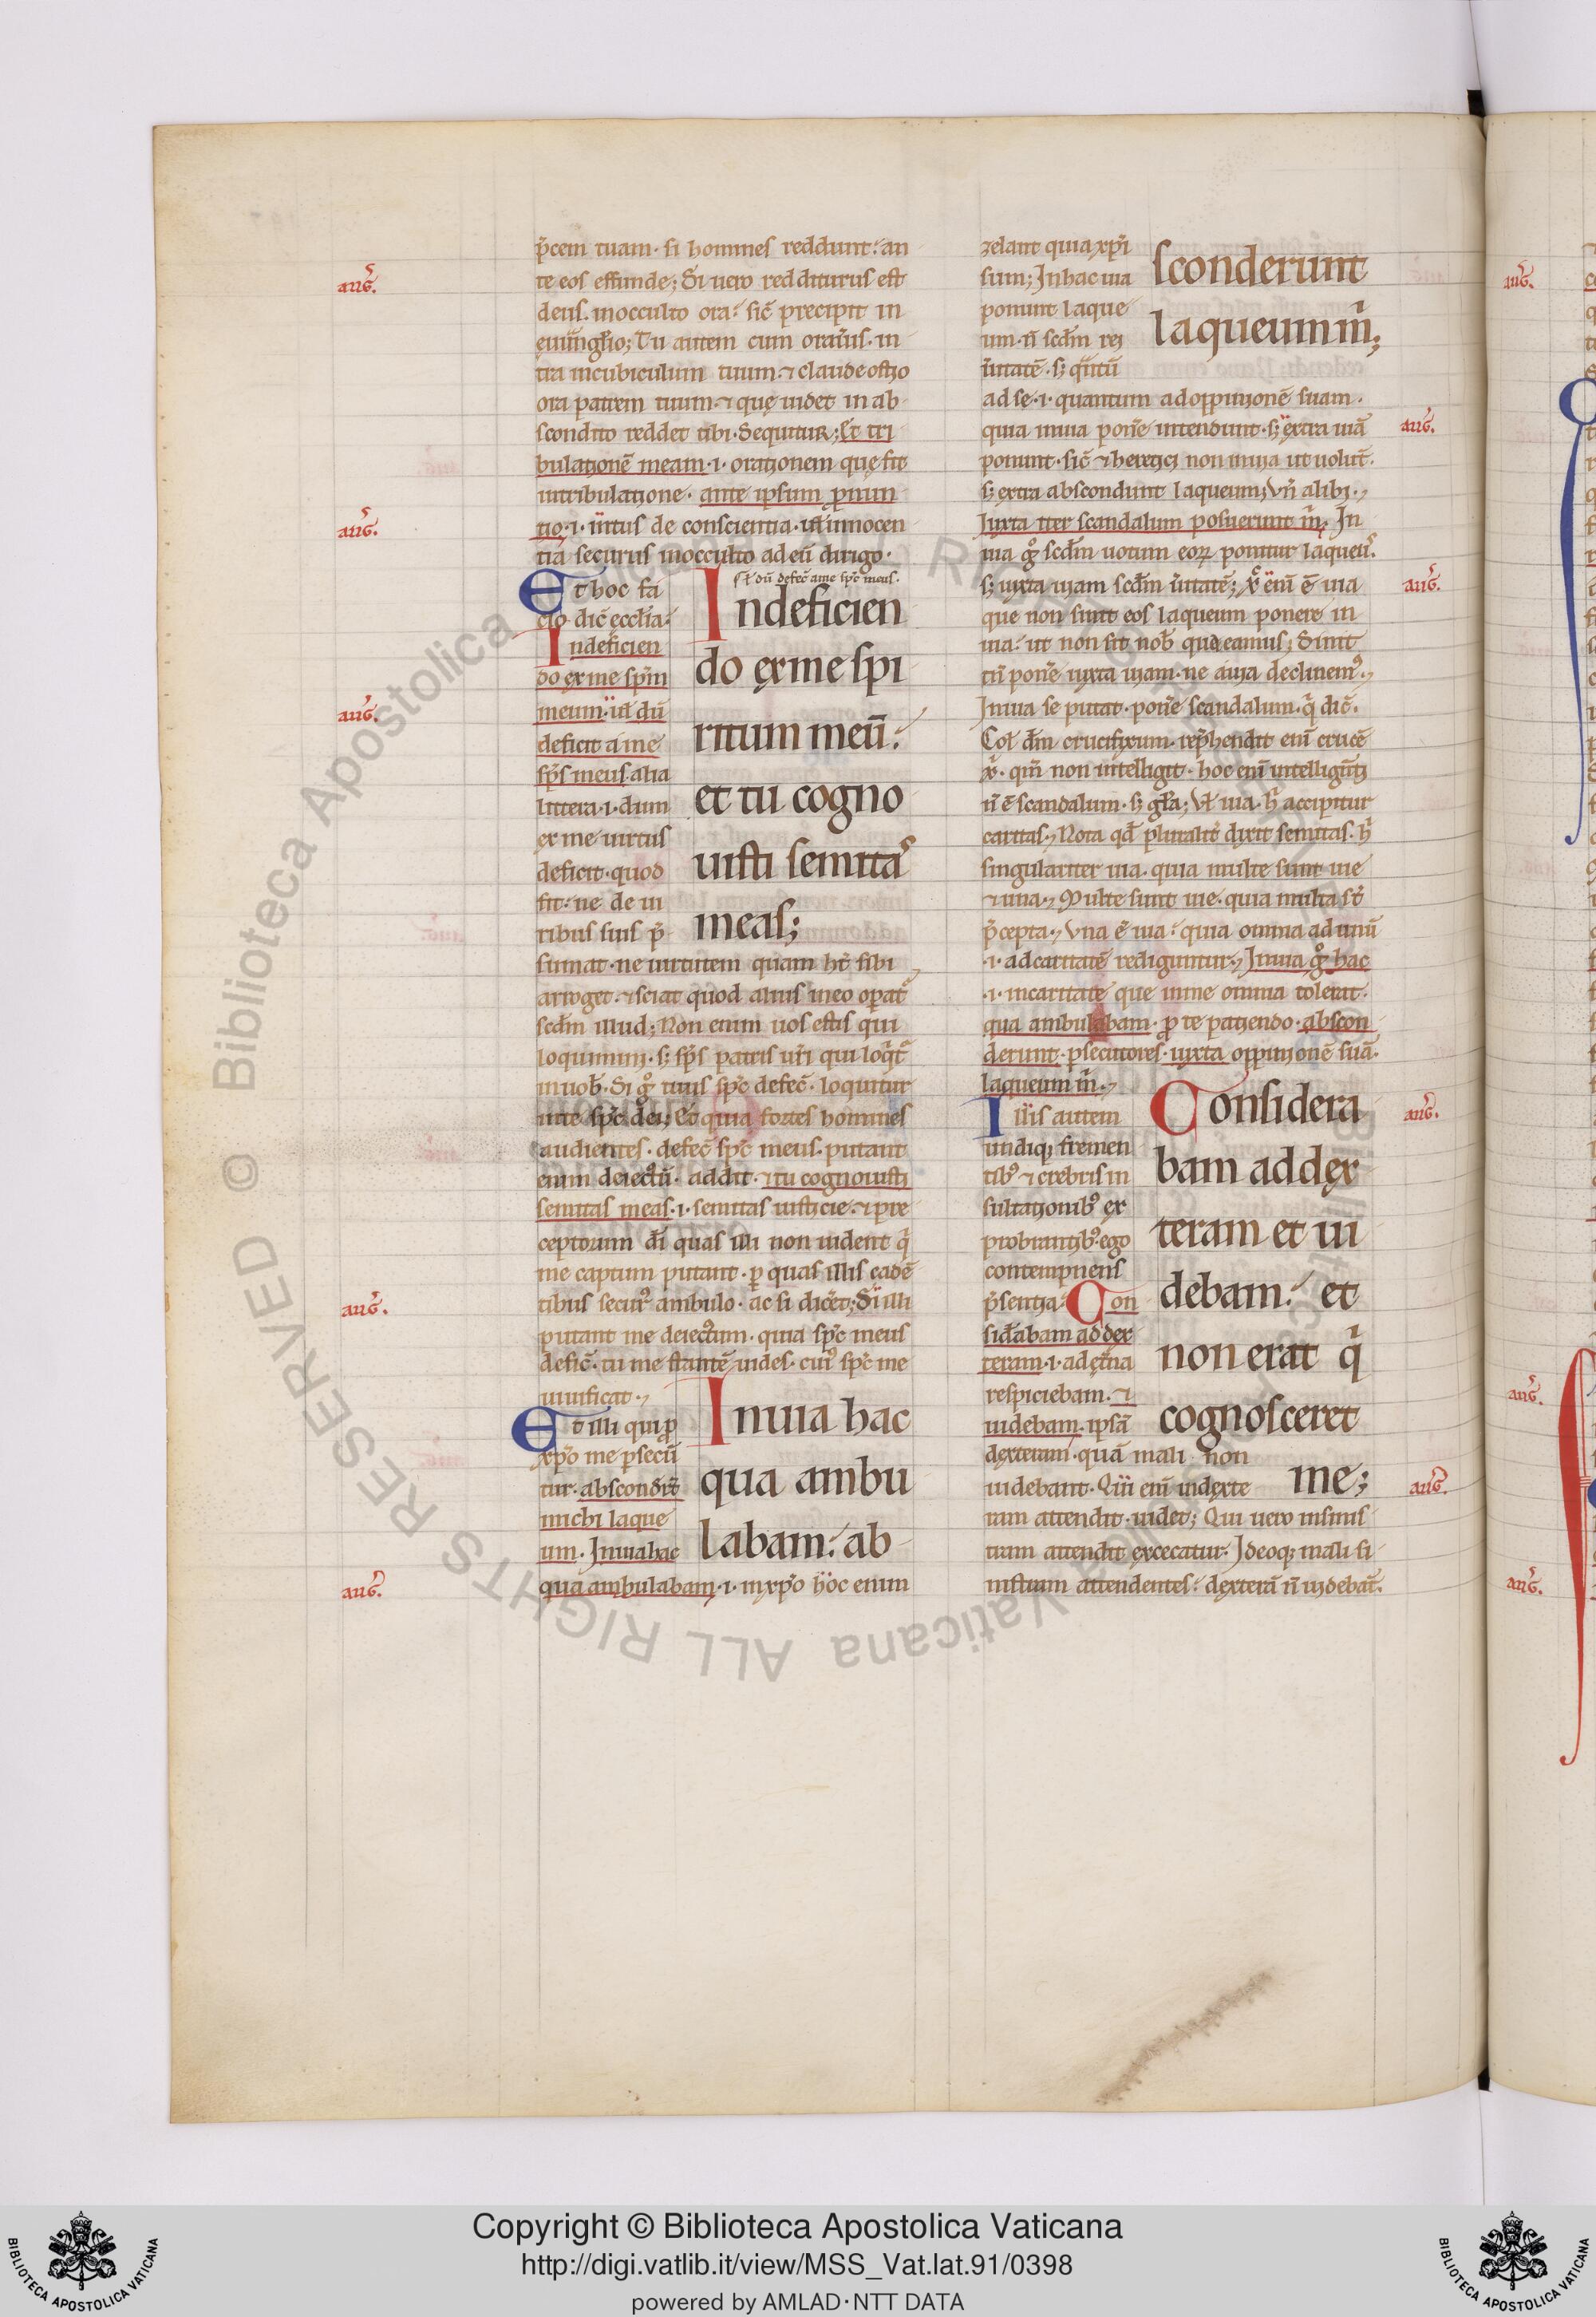 p̄cem tuam· si homines reddunt: an
te eos effunde; Si uero redditurus est
deus. in occulto ora: sic̄ precipit in
eu̅ngl̅io; Tu autem cum oraūis· in
tra in cubiculum tuum· ⁊ claude ostio
ora patrem tuum· ⁊ quę uidet in ab
scondito reddet tibi· Sequitur; Et tri
bulationē meam·i· orationem quę fit
in tribulatione· ante ipsum p̄nun
tio·i· intus de conscientia· ut innocen
tia securus in occulto ad eū dirigo·
Et hoc fa
cio· dic̄ eccl̅ia·
Indeficien
do ex me sp̅m
meum· ut̄ dū
deficit a me
sp̅s meus· alia
littera·i· dum
ex me uirtus
deficit· quod
fit· ne de ui
ribus suis p̄
sumat· ne uirtutem quam ht̄ sibi
arroget· ⁊ sciat quod alius in eo op̄at᷑
scd̄m illud; Non enim uos estis qui
loquimini· s; sp̅s patris ur̄i qui loq̄t᷑
in uob̄· Si g̊ tuus sp̅c defec̄· loquitur
in te sp̅c dei; Et quia fortes homines
audientes· defec̄ sp̅c meus· putant
enim deiectū· addit· ⁊ tu cognouisti
semitas meas·i· semitas iusticie· ⁊ pre
ceptorum dī quas illi non uident q̄
me captum putant· p̄ quas illis cadē
tibus secur᷒ ambulo· ac si dicēt; Si illi
putant me deiectum· quia sp̅c meus
defic̄· tu me stantē uides· cui᷒ sp̅c me
uiuificat·
Et illi qui p̄
xp̅o me p̄secū
tur· absconder̄t
michi laque
um· In uia hac
qua ambulabam·i· in xp̅o hoc enim
ut̄ dū defec̄ a me sp̅c meus·
Indeficien
do ex me spi
ritum meū:
et tu cogno
uisti semitas
meas;
In uia hac
qua ambu
labam: ab
zelant quia xp̅i
sum; In hac uia
ponunt laque
um· n̄ scd̄m rei
ūitatē· s; q̄ntū
ad se·i· quantum ad oppinionē suam·
quia in uia pon̄e intendunt· s; extra uiā
ponunt· sic̄ ⁊ heretici non in uia ut uolūt·
s; extra abscondunt laqueum; Vn̄ alibi·
Iuxta iter scandalum posuerunt m̄· In
uia g̊ scd̄m uotum eoꝝ ponitur laqueus·
s; iuxta uiam scd̄m ūitatē; xp̅c enī ē uia
que non sinit eos laqueum ponere in
uia· ut non sit nob̄ qua eamus; Sinit
tn̄ pon̄e iuxta uiam· ne a uia declinem᷒·
In uia se putat· pon̄e scandalum· q̄ dic̄·
Col̄ dm̄ crucifixum· rep̄hendit enī crucē
xp̅i· qm̄ non intelligit· hoc enī intelligūt;
n̄ ē scandalum· s; gl̄a; Ut̄ uia· h̄ accipitur
caritas· Nota qd̄ plurait̄ dixit semitas· h̄
singulariter uia· quia multe sunt uie
⁊ una· Multe sunt uie· quia multa st̄
p̄cepta· Vna ē uia: quia omnia ad unū
·i· ad caritatē rediguntur· In uia g̊ hac
·i· in caritate que in me omnia tolerat·
qua ambulabam· p̄ te patiendo· abscon
derunt· p̄secutores· iuxta oppinionē suā·
laqueum m̄·
Illis autem
undiq; fremen
tib᷒ ⁊ crebris in
sultationib᷒ ex
probrantib᷒· ego
contempnens
p̄sentia· Con
sid̄abam ad dex
teram·i· ad et̄na
respiciebam· ⁊
uidebam· ipsā
dexteram· quā mali non
uidebant· Qui enī in dexte
ram attendit· uidet; Qui uero in sinis
tram attendit excecatur· Ideoq; mali si
nistram attendentes: dexterā n̄ uidebāt·
sconderunt
laqueum m̄;
Considera
bam ad dex
teram et ui
debam: et
non erat q̄
cognosceret
me;
auḡ·
auḡ·
auḡ·
auḡ·
auḡ·
auḡ·
auḡ·
auḡ·
auḡ·
auḡ·
auḡ·
auḡ·
© Biblioteca Apostolica Vaticana ALL RIGHTS RESERVED
Copyright © Biblioteca Apostolica Vaticana
http://digi.vatlib.it/view/MSS_Vat.lat.91/0398
powered by AMLAD·NTT DATA
BIBLIOTECA APOSTOLICA VATICANA
BIBLIOTECA APOSTOLICA VATICANA